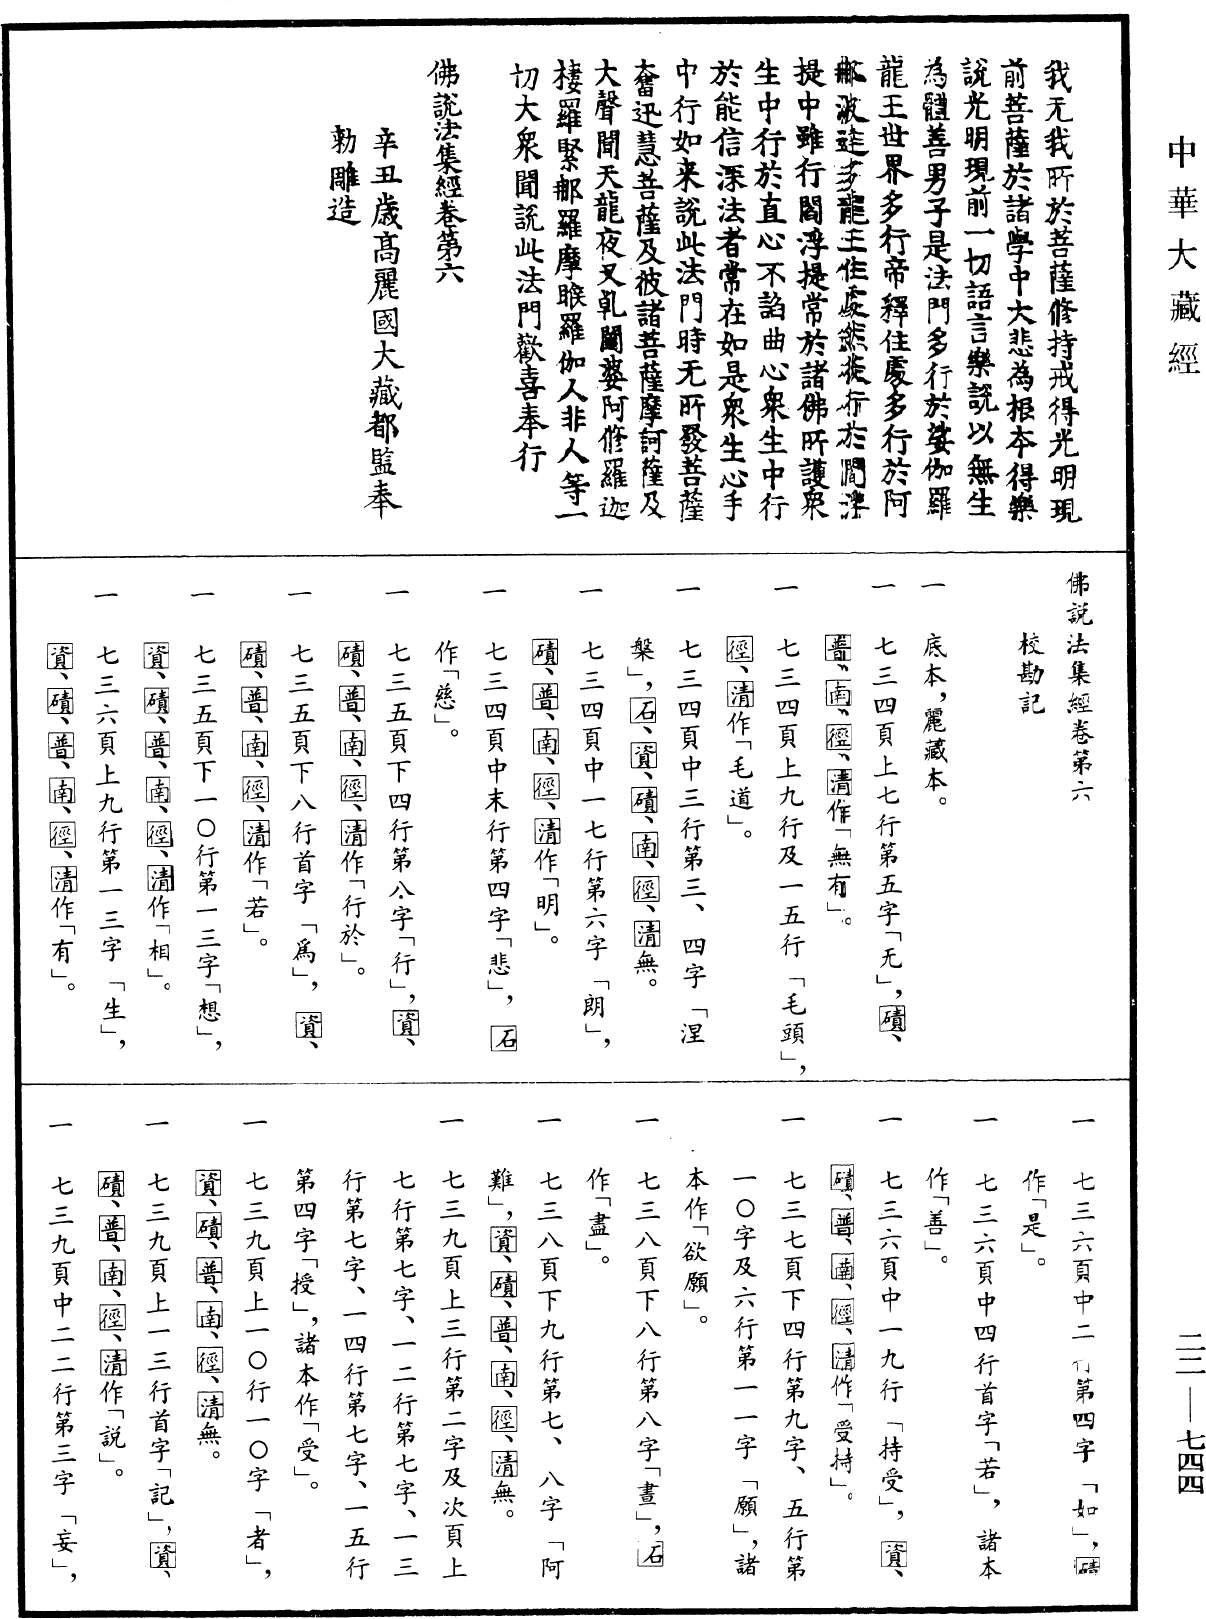 中華大藏經
我无我所於菩薩修持戒得光明現
前菩薩於諸學中大悲為根本得樂
說光明現前一切語言樂說以無生
為體善男子是法門多行於娑伽羅
龍王世界多行帝釋住處多行於阿
那波達多龍王住處然後行於閻浮
提中雖行閻浮提常於諸佛所護眾
生中行於直心不諂曲心眾生中行
於能信深法者常在如是眾生心手
中行如来說此法門時无所發菩薩
奮迅慧菩薩及彼諸菩薩摩訶薩及
大聲聞天龍夜叉乹闥婆阿修羅迦
樓羅緊那羅摩睺羅伽人非人等一
切大眾聞說此法門歡喜奉行
佛說法集經卷第六
辛丑歲高麗國大藏都監奉
勅雕造
佛説法集經卷第六
校勘記
一 底本，麗藏本。
一 七三四頁上七行第五字「无」，磧、
普、南、徑、清作「無有」。
一 七三四頁上九行及一五行「毛頭」，
徑、清作「毛道」。
一 七三四頁中三行第三、四字「涅
槃」，石、資、磧、南、徑、清無。
一 七三四頁中一七行第六字「朗」，
磧、普、南、徑、清作「明」。
一 七三四頁中末行第四字「悲」，石
作「慈」。
一 七三五頁下四行第八字「行」，資、
磧、普、南、徑、清作「行於」。
一 七三五頁下八行首字「爲」，資、
磧、普、南、徑、清作「若」。
一 七三五頁下一〇行第一三字「想」，
資、磧、普、南、徑、清作「相」。
一 七三六頁上九行第一三字「生」，
資、磧、普、南、徑、清作「有」。
一 七三六頁中二行第四字「如」，磧
作「是」。
一 七三六頁中四行首字「若」，諸本
作「善」。
一 七三六頁中一九行「持受」，資、
磧、普、南、徑、清作「受持」。
一 七三七頁下四行第九字、五行第
一〇字及六行第一一字「願」，諸
本作「欲願」。
一 七三八頁下八行第八字「晝」，石
作「盡」。
一 七三八頁下九行第七、八字「阿
難」，資、磧、普、南、徑、清無。
一 七三九頁上三行第二字及次頁上
七行第七字、一二行第七字、一三
行第七字、一四行第七字、一五行
第四字「授」，諸本作「受」。
一 七三九頁上一〇行一〇字「者」，
資、磧、普、南、徑、清無。
一 七三九頁上一三行首字「記」，資、
磧、普、南、徑、清作「説」。
一 七三九頁中二二行第三字「妄」，
二三—七四四